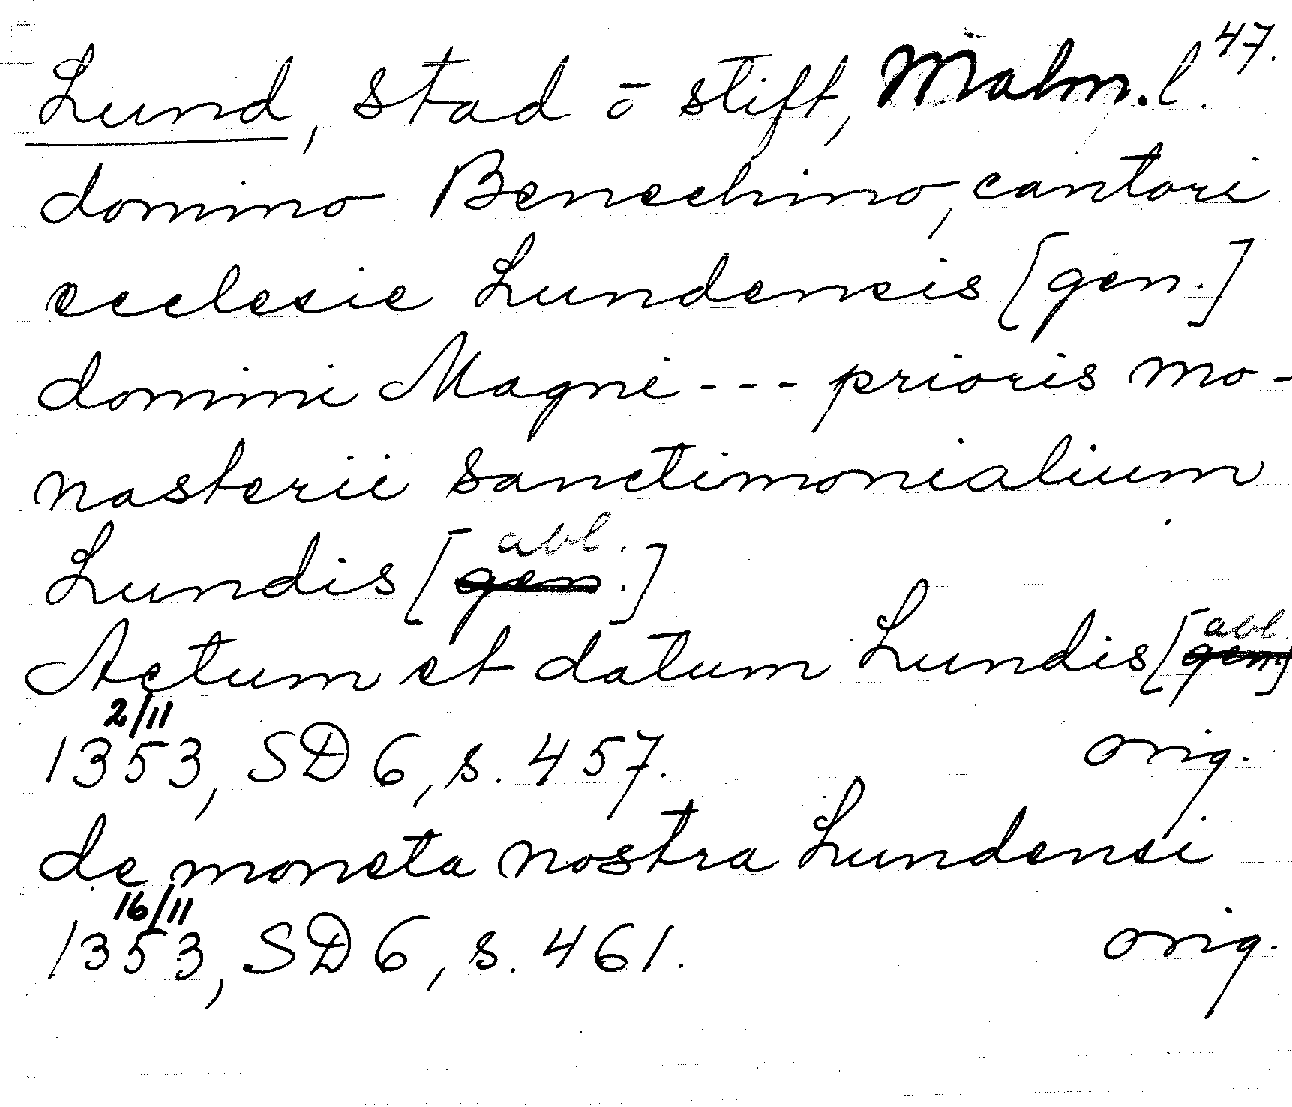 Lund, stad o stift, Malm. l. 47.
domino Benechino, cantori
ecclesie Lundensis [gen.]
domini Magni --- prioris mo-
nasterii sanctimonialium
Lundis [gen. abl.]
Actum et datum Lundis [gen. abl.]
1353, 2/11 SD 6, s. 457. orig.
de moneta nostra Lundensi
1353, 16/11 SD 6, s. 461. orig.